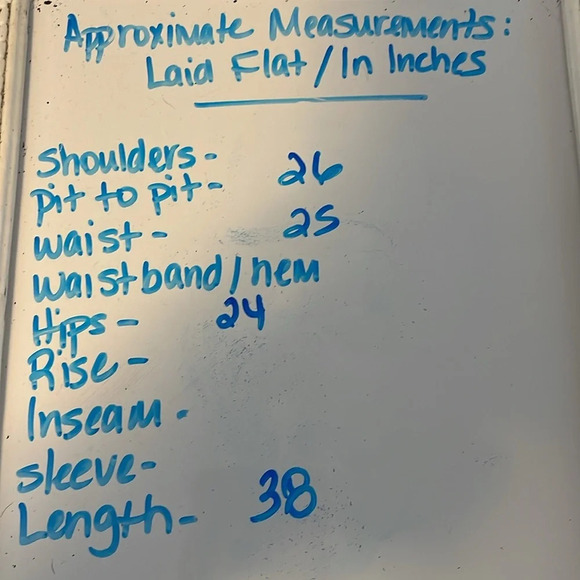 Approximate Measurements:
Laid Flat/In Inches
Shoulders-
pit to pit- 26
waist- 25
waistband/hem
Hips- 24
Rise-
Inseam-
sleeve-
Length- 38